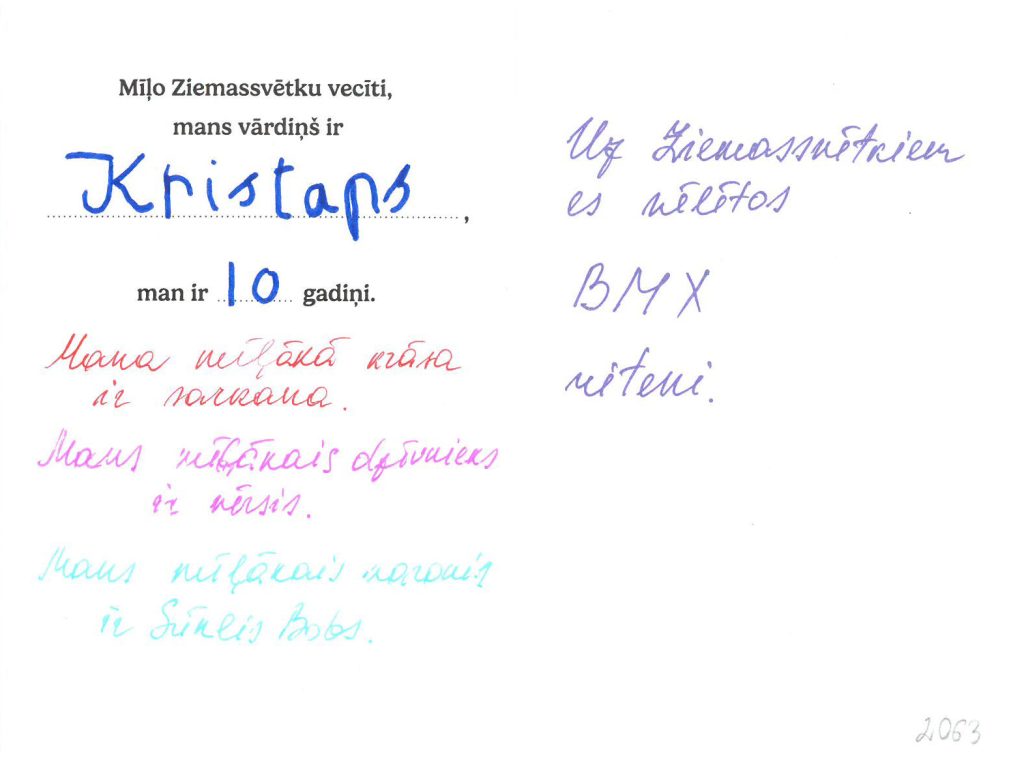 Mīļo Ziemassvētku vecīti,
mans vārdiņš ir
Kristaps,
man ir 10 gadiņi.
Mana mīļākā krāsa
ir sarkana.
Mans mīļākais dzīvnieks
ir vērsis.
Mans mīļākais varonis
ir Sūklis Bobs.
Uz Ziemassvētkiem
es vēlētos
BMX
riteni.
2063